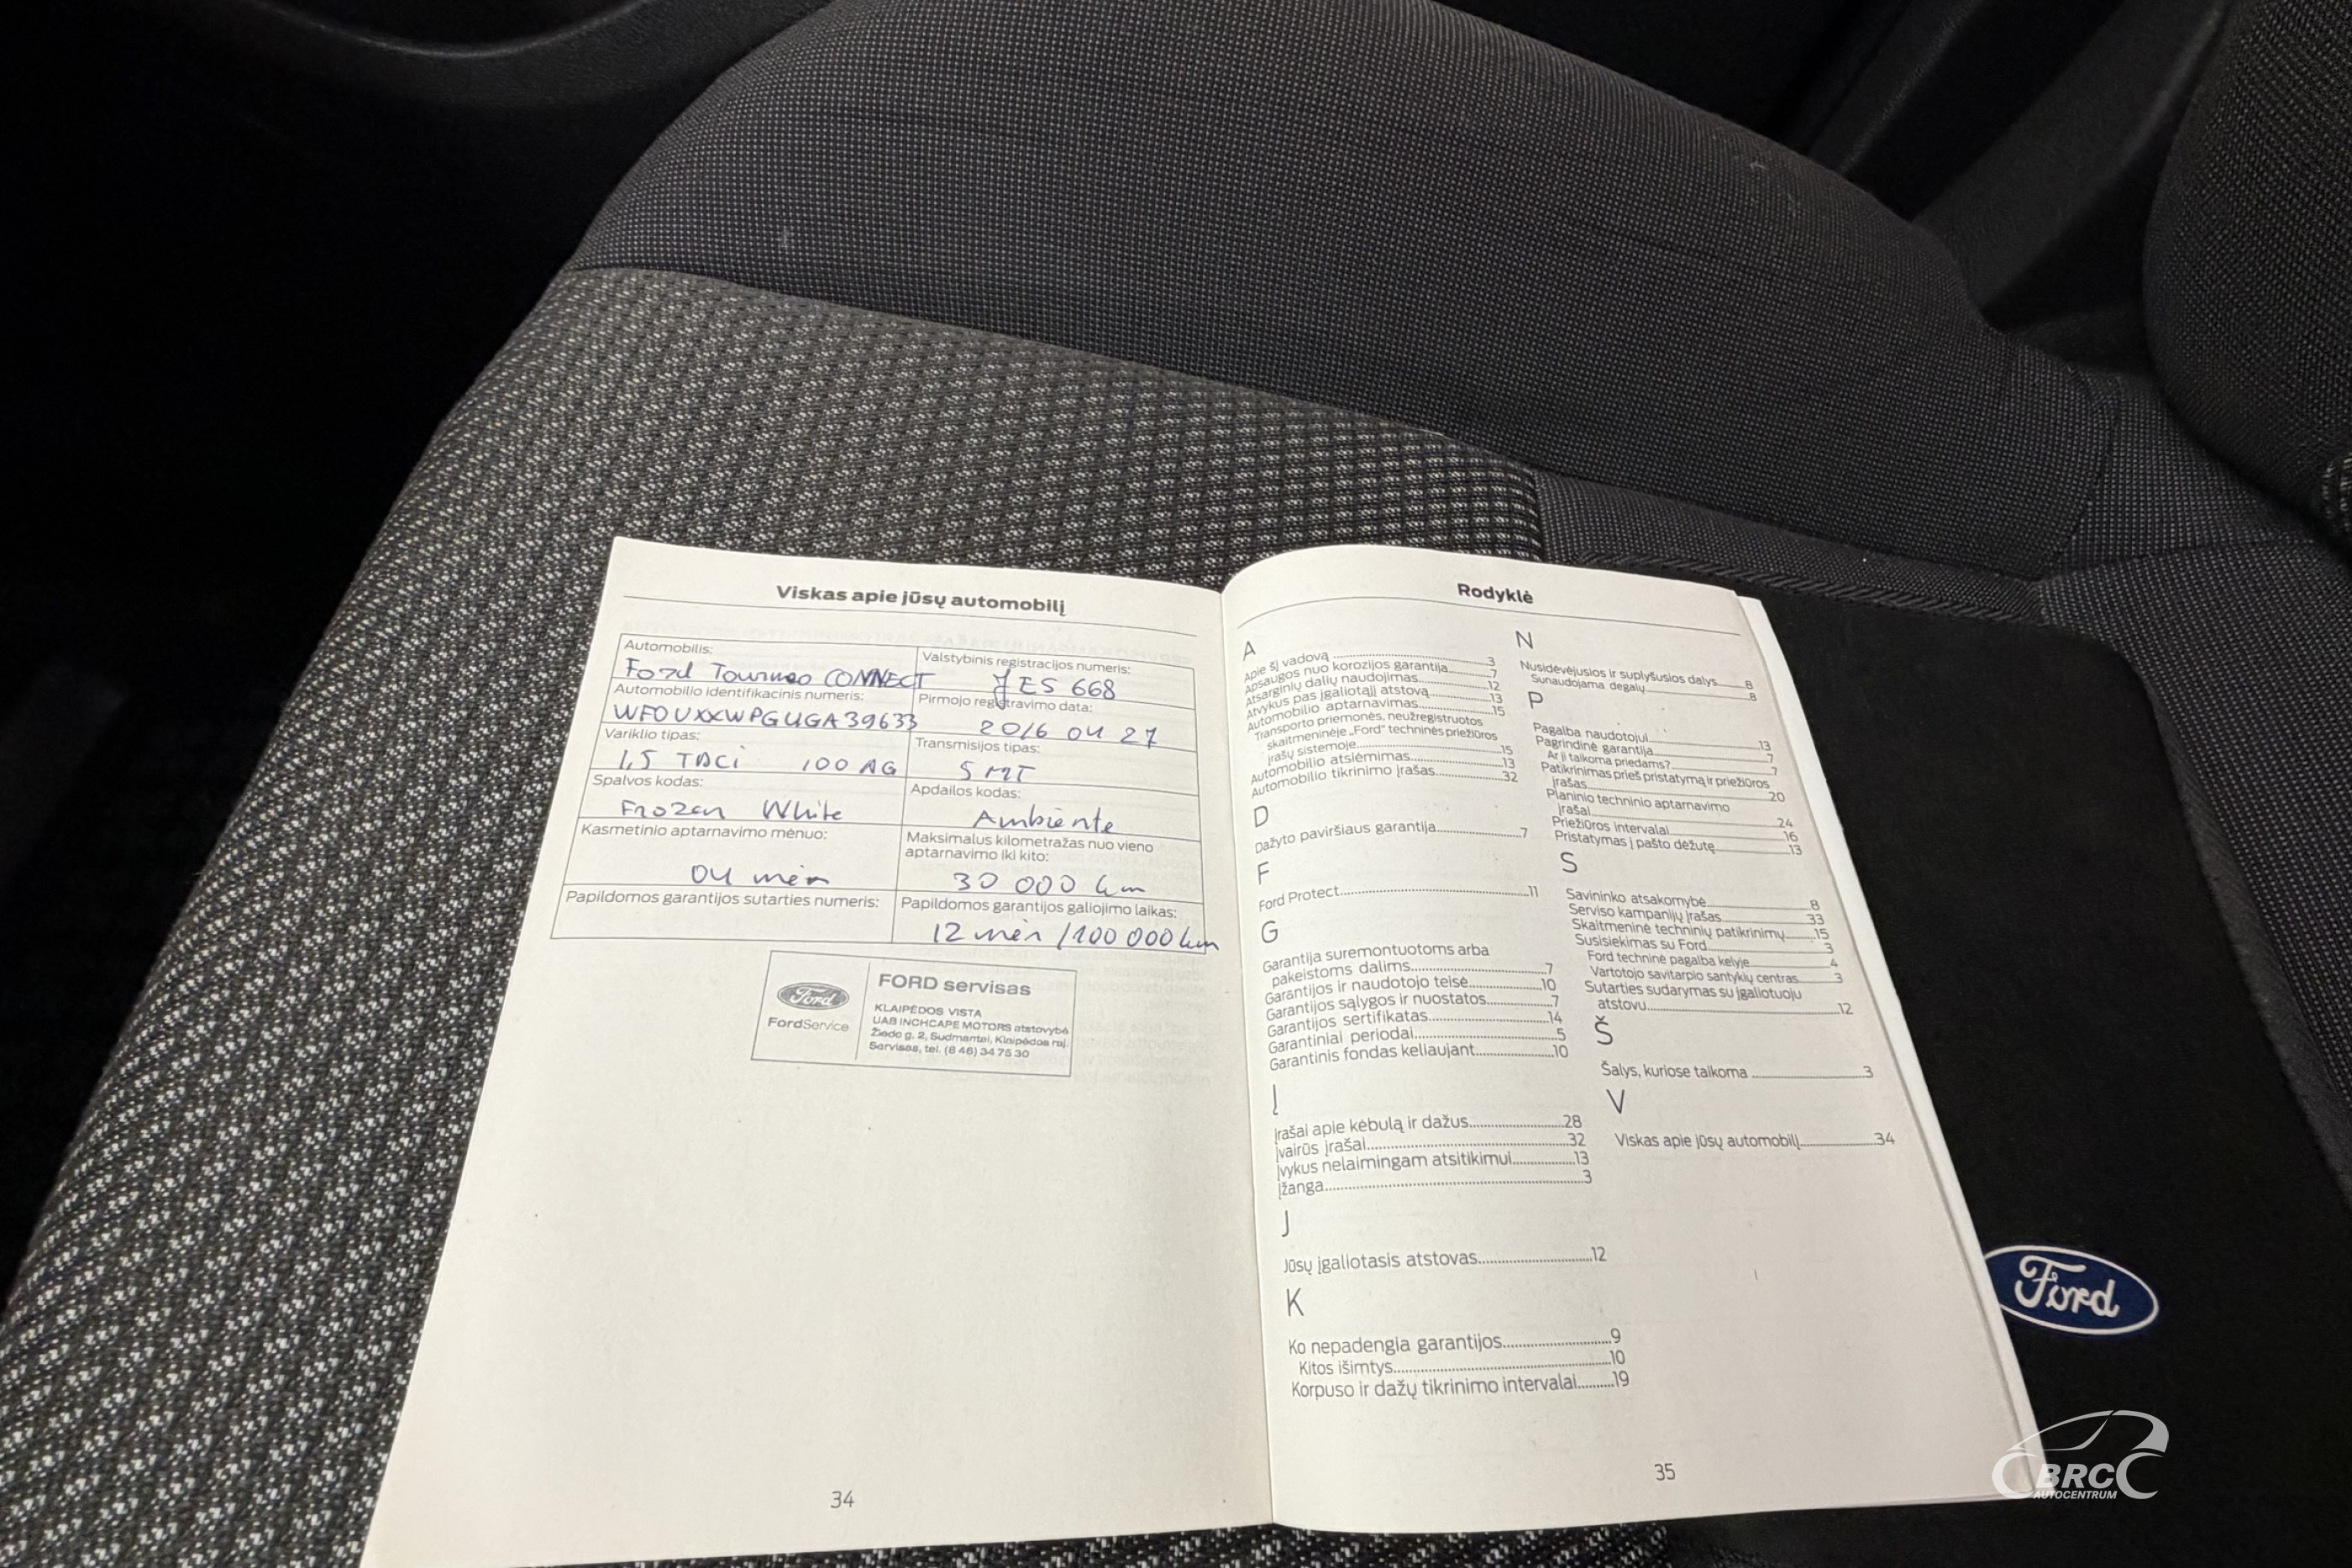 Viskas apie jūsų automobilį
Automobilis:
Ford Tourneo CONNECT
Valstybinis registracijos numeris:
JES 668
Automobilio identifikacinis numeris:
WF0UXXWPGUGA39633
Pirmojo registravimo data:
2016 04 27
Variklio tipas:
1,5 TDCi 100 AG
Transmisijos tipas:
5 MT
Spalvos kodas:
Frozen White
Apdailos kodas:
Ambiente
Kasmetinio aptarnavimo mėnuo:
04 mėn
Maksimalus kilometražas nuo vieno
aptarnavimo iki kito:
30 000 km
Papildomos garantijos sutarties numeris:
Papildomos garantijos galiojimo laikas:
12 mėn / 100 000 km
Ford
FordService
FORD servisas
KLAIPĖDOS VISTA
UAB INCHCAPE MOTORS atstovybė
Žiedo g. 2, Sudmantai, Klaipėdos raj.
Servisas, tel. (8 46) 34 75 30
34
Rodyklė
A
Apie šį vadovą 3
Apsaugos nuo korozijos garantija 7
Atsarginių dalių naudojimas 12
Atvykus pas įgaliotąjį atstovą 13
Automobilio aptarnavimas 15
Transporto priemonės, neužregistruotos
skaitmeninėje „Ford“ techninės priežiūros
įrašų sistemoje 15
Automobilio atsiėmimas 13
Automobilio tikrinimo įrašas 32
D
Dažyto paviršiaus garantija 7
F
Ford Protect 11
G
Garantija suremontuotoms arba
pakeistoms dalims 7
Garantijos ir naudotojo teisė 10
Garantijos sąlygos ir nuostatos 7
Garantijos sertifikatas 14
Garantiniai periodai 5
Garantinis fondas keliaujant 10
Į
Įrašai apie kėbulą ir dažus 28
Įvairūs įrašai 32
Įvykus nelaimingam atsitikimui 13
Įžanga 3
J
Jūsų įgaliotasis atstovas 12
K
Ko nepadengia garantijos 9
Kitos išimtys 10
Korpuso ir dažų tikrinimo intervalai 19
N
Nusidėvėjusios ir suplyšusios dalys 8
Sunaudojama degalų 8
P
Pagalba naudotojui 13
Pagrindinė garantija 7
Ar ji taikoma priedams? 7
Patikrinimas prieš pristatymą ir priežiūros
įrašas 20
Planinio techninio aptarnavimo
įrašai 24
Priežiūros intervalai 16
Pristatymas į pašto dėžutę 13
S
Savininko atsakomybė 8
Serviso kampanijų įrašas 33
Skaitmeninė techninių patikrinimų 15
Susisiekimas su Ford 3
Ford techninė pagalba kelyje 4
Vartotojo savitarpio santykių centras 3
Sutarties sudarymas su įgaliotuoju
atstovu 12
Š
Šalys, kuriose taikoma 3
V
Viskas apie jūsų automobilį 34
35
Ford
BRC
AUTOCENTRUM